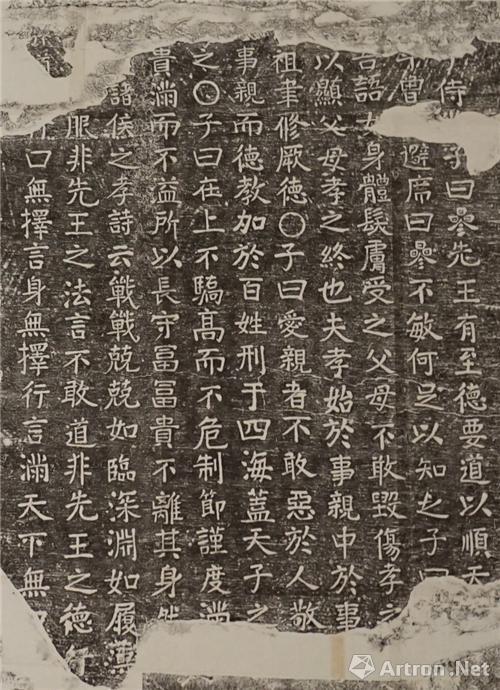 侍 子曰參先王有至德要道以順天
曾 避席曰參不敏何足以知之子曰
語 身體髮膚受之父母不敢毀傷孝之
以顯父母孝之終也夫孝始於事親中於事
祖聿修厥德〇子曰愛親者不敢惡於人敬
事親而德教加於百姓刑于四海蓋天子之
之〇子曰在上不驕高而不危制節謹度滿
貴滿而不益所以長守冨冨貴不離其身然
諸侯之孝詩云戰戰兢兢如臨深淵如履薄
服非先王之法言不敢道非先王之德行
口無擇言身無擇行言滿天下無
Artron.Net